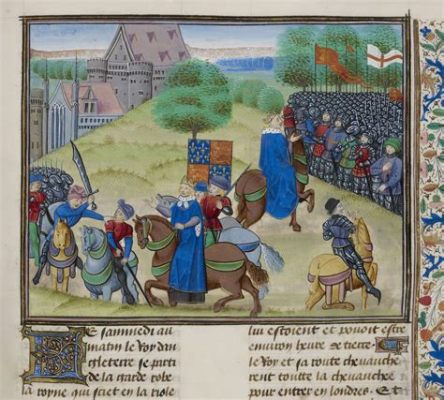 LE sammedi au
matin le Roy dan
gleterre se parti
de la garde robe
la royne qui siet en la riole
lui estoient et pouoit estre
environ heure de tierce
le Roy et sa route cheuauche
rent toutte la cheuauchee
pour entrer en londres. Et